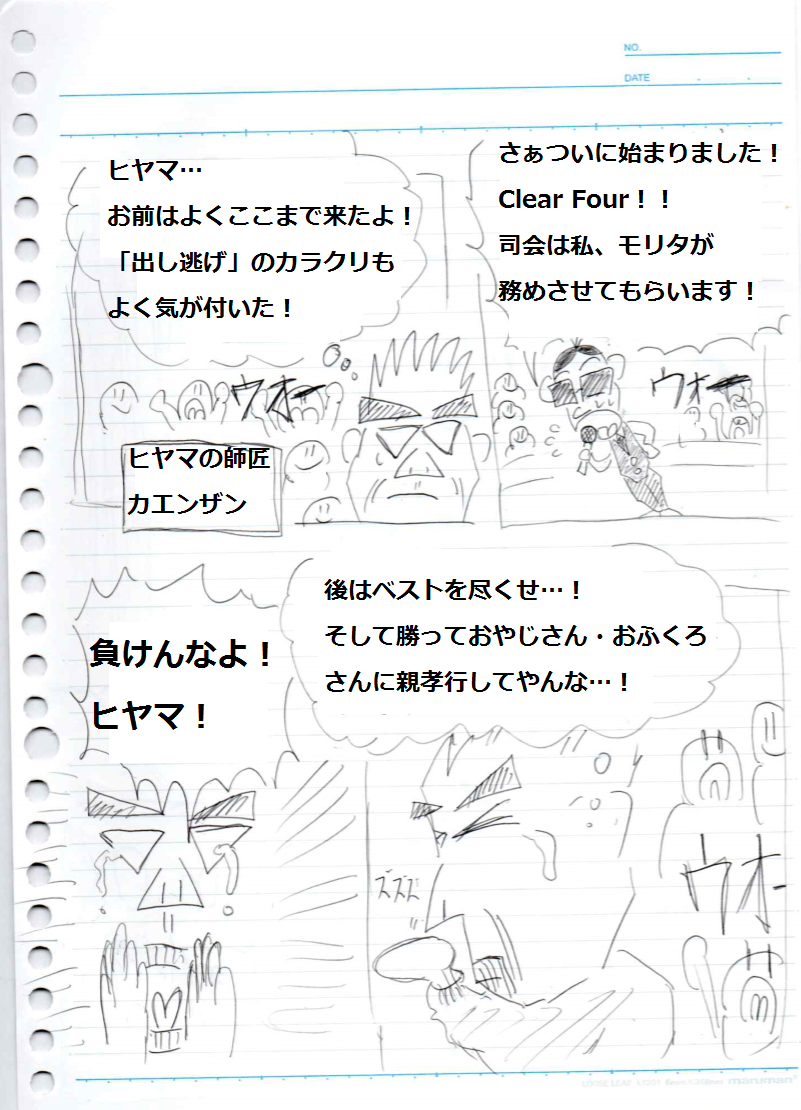 NO.
DATE
さぁついに始まりました！
Clear Four！！
司会は私、モリタが
務めさせてもらいます！
ウオー
ヒヤマ…
お前はよくここまで来たよ！
「出し逃げ」のカラクリも
よく気が付いた！
ウオー
ヒヤマの師匠
カエンザン
後はベストを尽くせ…！
そして勝っておやじさん・おふくろ
さんに親孝行してやんな…！
ズズズ
ウオー
負けんなよ！
ヒヤマ！
LOOSE LEAF L1201 maruman